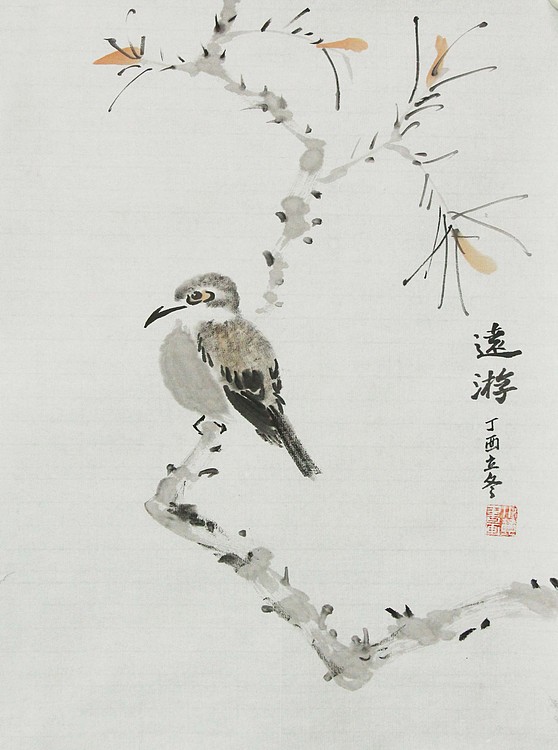 遠游
丁酉立冬